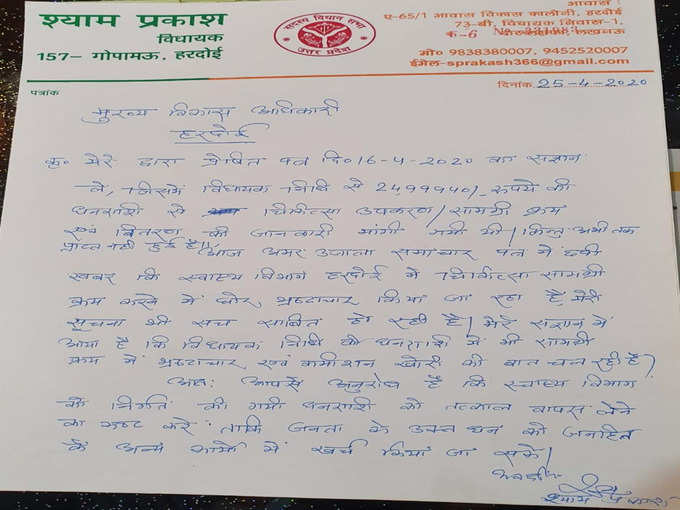 श्याम प्रकाश
विधायक
157– गोपामऊ, हरदोई
सदस्य विधान सभा
उत्तर प्रदेश
आवास
ए-65/1 आवास विकास कालोनी, हरदोई
73-बी, विधायक निवास-1,
मो० 9838380007, 9452520007
ईमेल-sprakash366@gmail.com
पत्रांक
दिनांक 25-4-2020
मुख्य विकास अधिकारी
हरदोई
कृ० मेरे द्वारा प्रेषित पत्र दि० 16-4-2020 का संज्ञान
लें, जिसमें विधायक निधि से 2499940/- रुपये की
धनराशि से चिकित्सा उपकरण/सामग्री क्रय
एवं वितरण की जानकारी मांगी गयी थी। किन्तु अभी तक
प्राप्त नहीं हुई है।
आज अमर उजाला समाचार पत्र में छपी
खबर कि स्वास्थ्य विभाग हरदोई में चिकित्सा सामग्री
क्रय करने में घोर भ्रष्टाचार किया जा रहा है, मेरी
सूचना भी सच साबित हो रही है। मेरे संज्ञान में
आया है कि विधायक निधि की धनराशि में भी सामग्री
क्रय में भ्रष्टाचार एवं कमीशन खोरी की बात चल रही है।
अतः आपसे अनुरोध है कि स्वास्थ्य विभाग
को निर्गत की गयी धनराशी को तत्काल वापस लेने
का कष्ट करें ताकि जनता के उक्त धन को जनहित
के अन्य कार्यों में खर्च किया जा सके।
भवदीय
श्याम प्रकाश